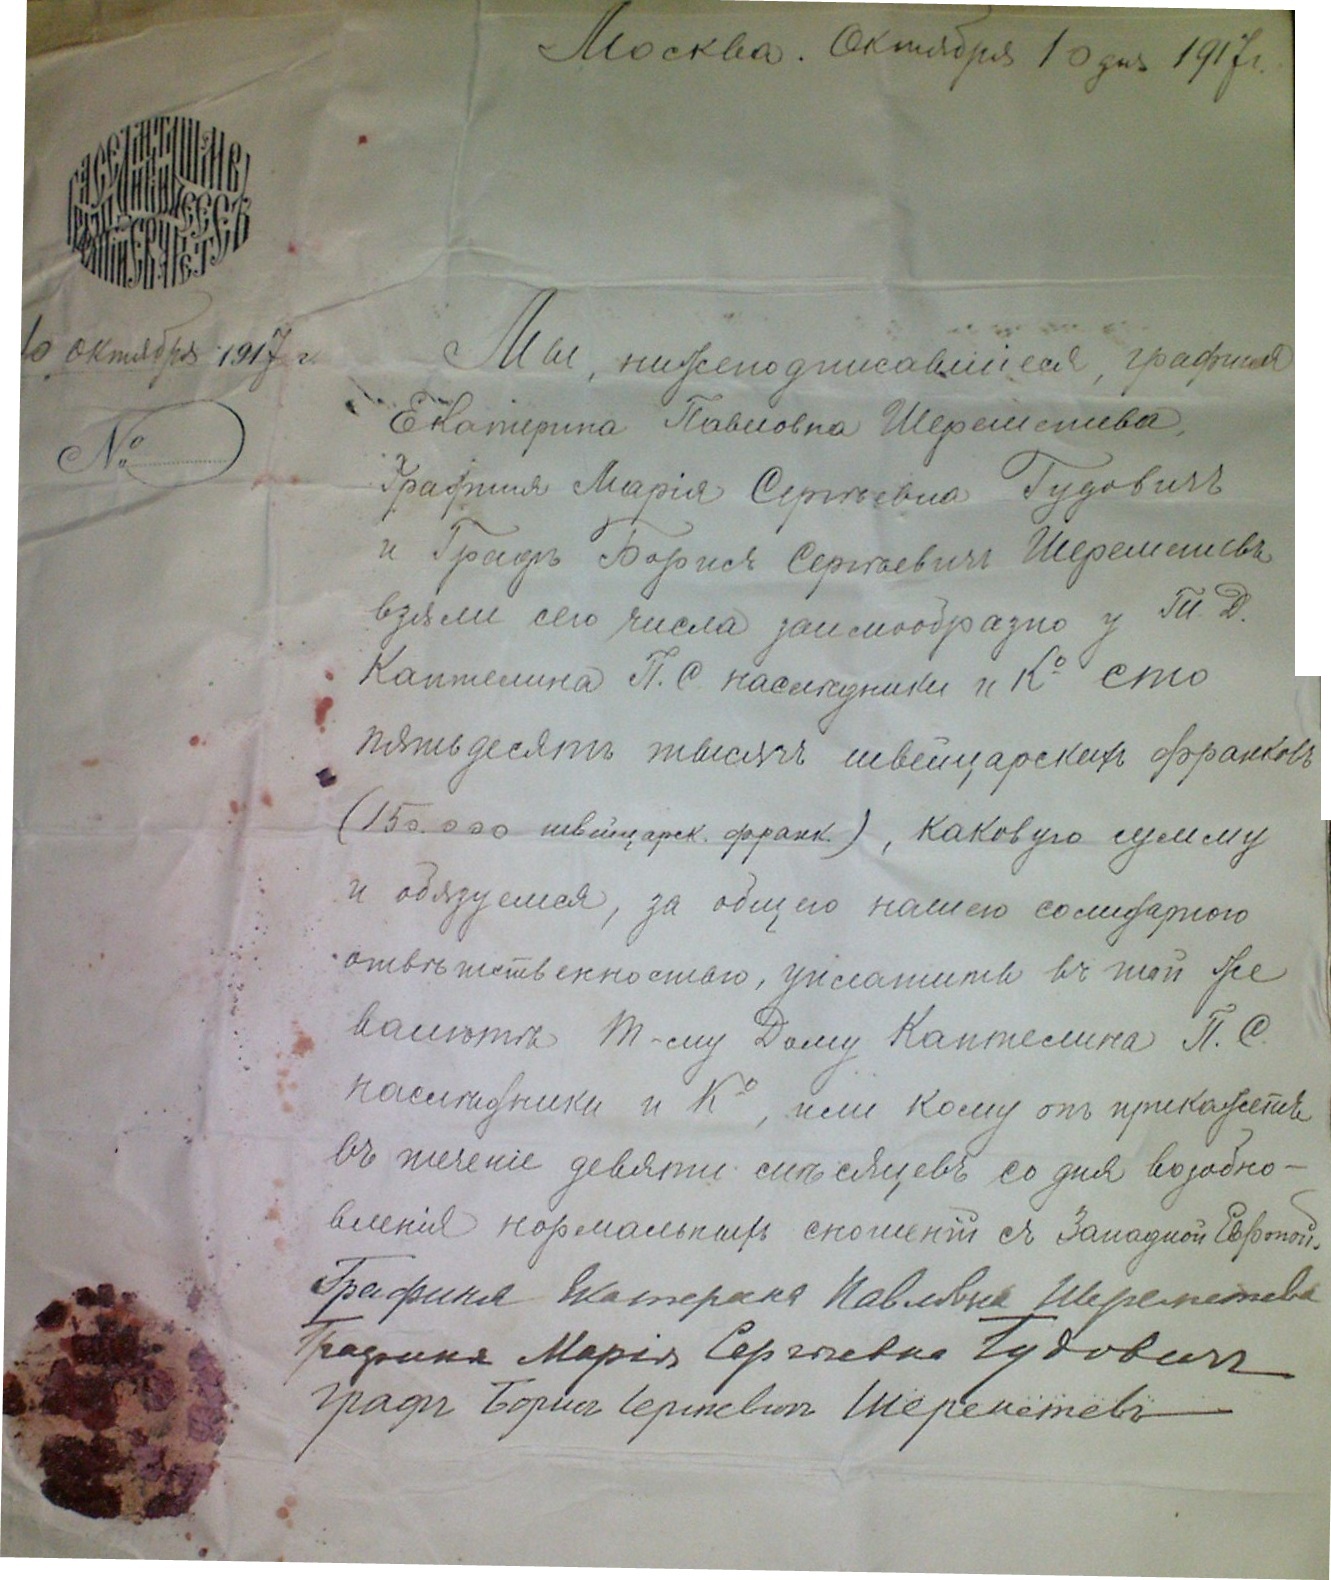 Москва. Октября 10 дня 1917 г.
10 октября 1917 г.
№
Мы, нижеподписавшіеся, графиня
Екатерина Павловна Шереметева,
Графиня Марія Сергѣевна Гудовичъ
и Графъ Борисъ Сергѣевичъ Шереметевъ
взяли сего числа заимообразно у Т. Д.
Каптелина П. С. наслѣдники и Кº сто
пятьдесятъ тысячъ швейцарскихъ франковъ
(150.000 швейцарск. франк.), каковую сумму
и обязуемся, за общею нашею солидарною
отвѣтственностью, уплатить въ той же
валютѣ Т-му Дому Каптелина П. С.
наслѣдники и Кº, или кому онъ прикажетъ
въ теченіе девяти мѣсяцевъ со дня возобно-
вленія нормальныхъ сношеній съ Западной Европой.
Графиня Екатерина Павловна Шереметева
Графиня Марія Сергѣевна Гудовичъ
Графъ Борисъ Сергѣевичъ Шереметевъ